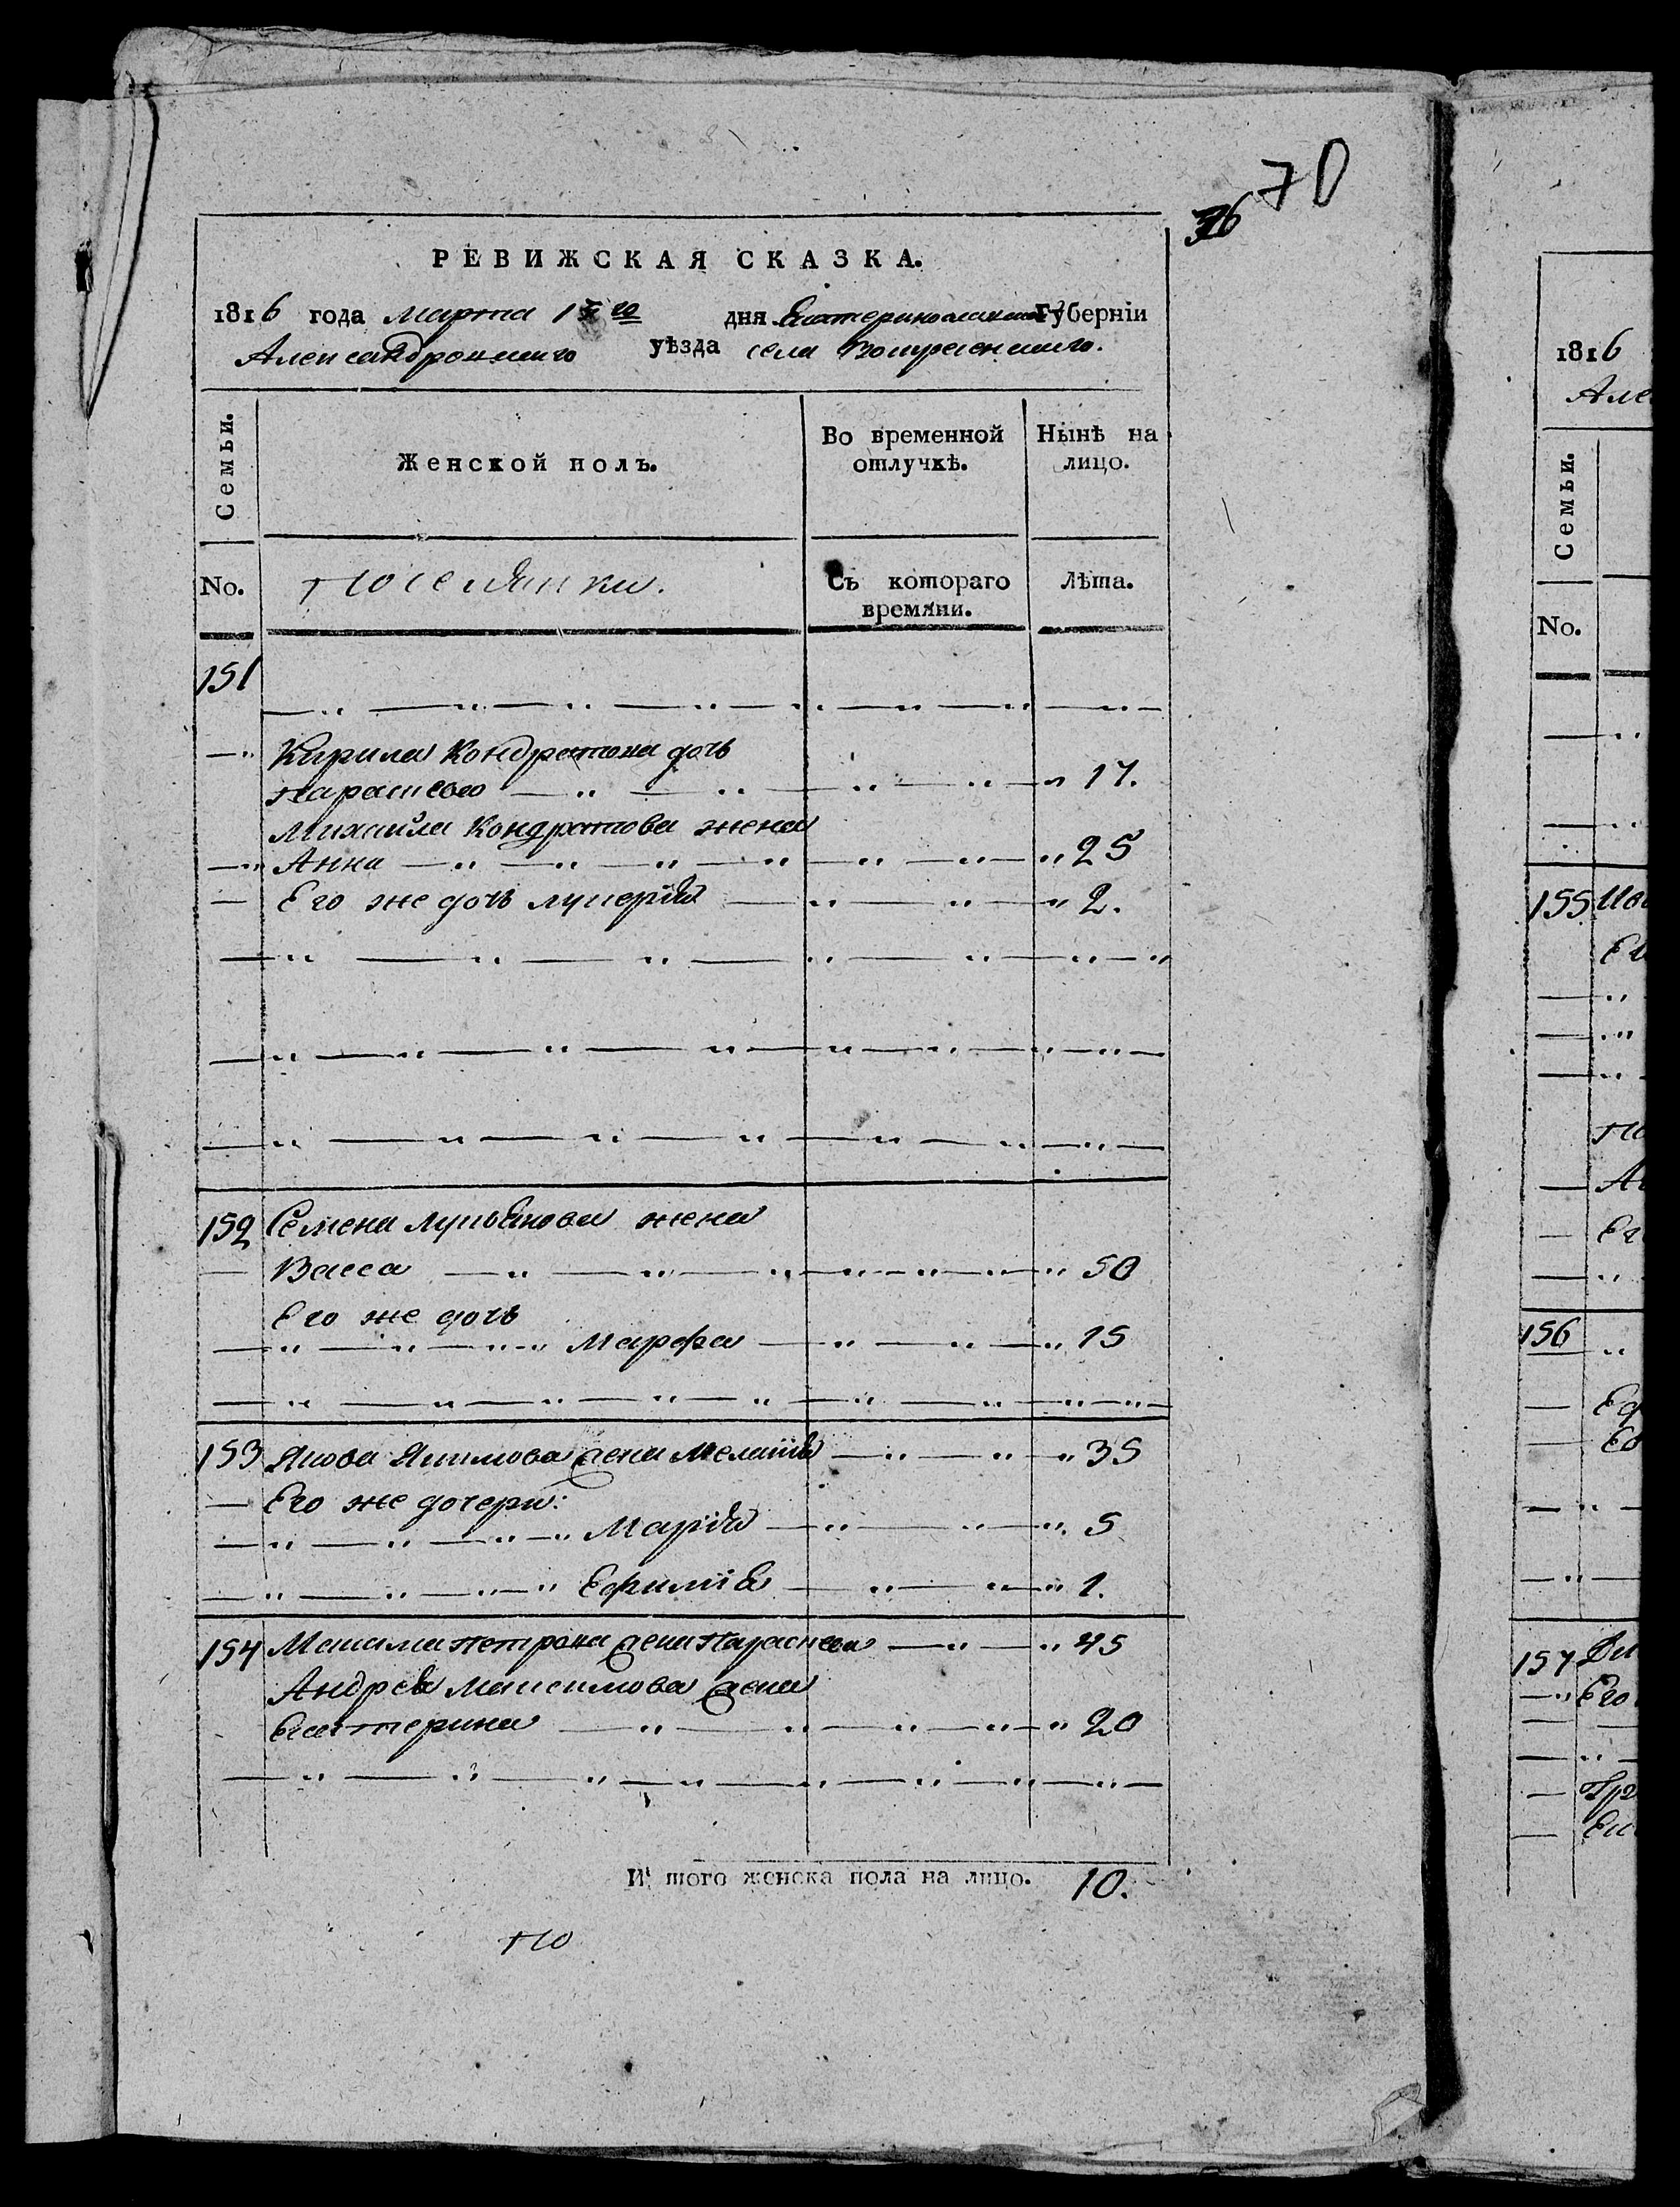 70
36
РЕВИЖСКАЯ СКАЗКА.
1816 года марта 15го дня Екатеринославской Губерніи
Александровскаго уѣзда села Воскресенскаго.
Семьи.
Женской полъ.
Во временной отлучкѣ.
Нынѣ на лицо.
No.
поселянки.
Съ котораго времяни.
Лѣта.
151
Кирила Кондратова дочь
параскевя 17.
Михайла Кондратова жена
Анна 25
Его же дочь лукерія 2.
152 Семена лукьянова жена
Васса 50
Его же дочь
Марфа 15
153 Якова Якимова жена Меланія 35
Его же дочери:
Марія 5
Ефимія 1.
154 Максима петрова жена параскева 45
Андрея максимова жена
Екатерина 20
И того женска пола на лицо. 10.
по
1816
Але
Семьи.
No.
155 Ив
Ег
по
Ег
156
157
Его